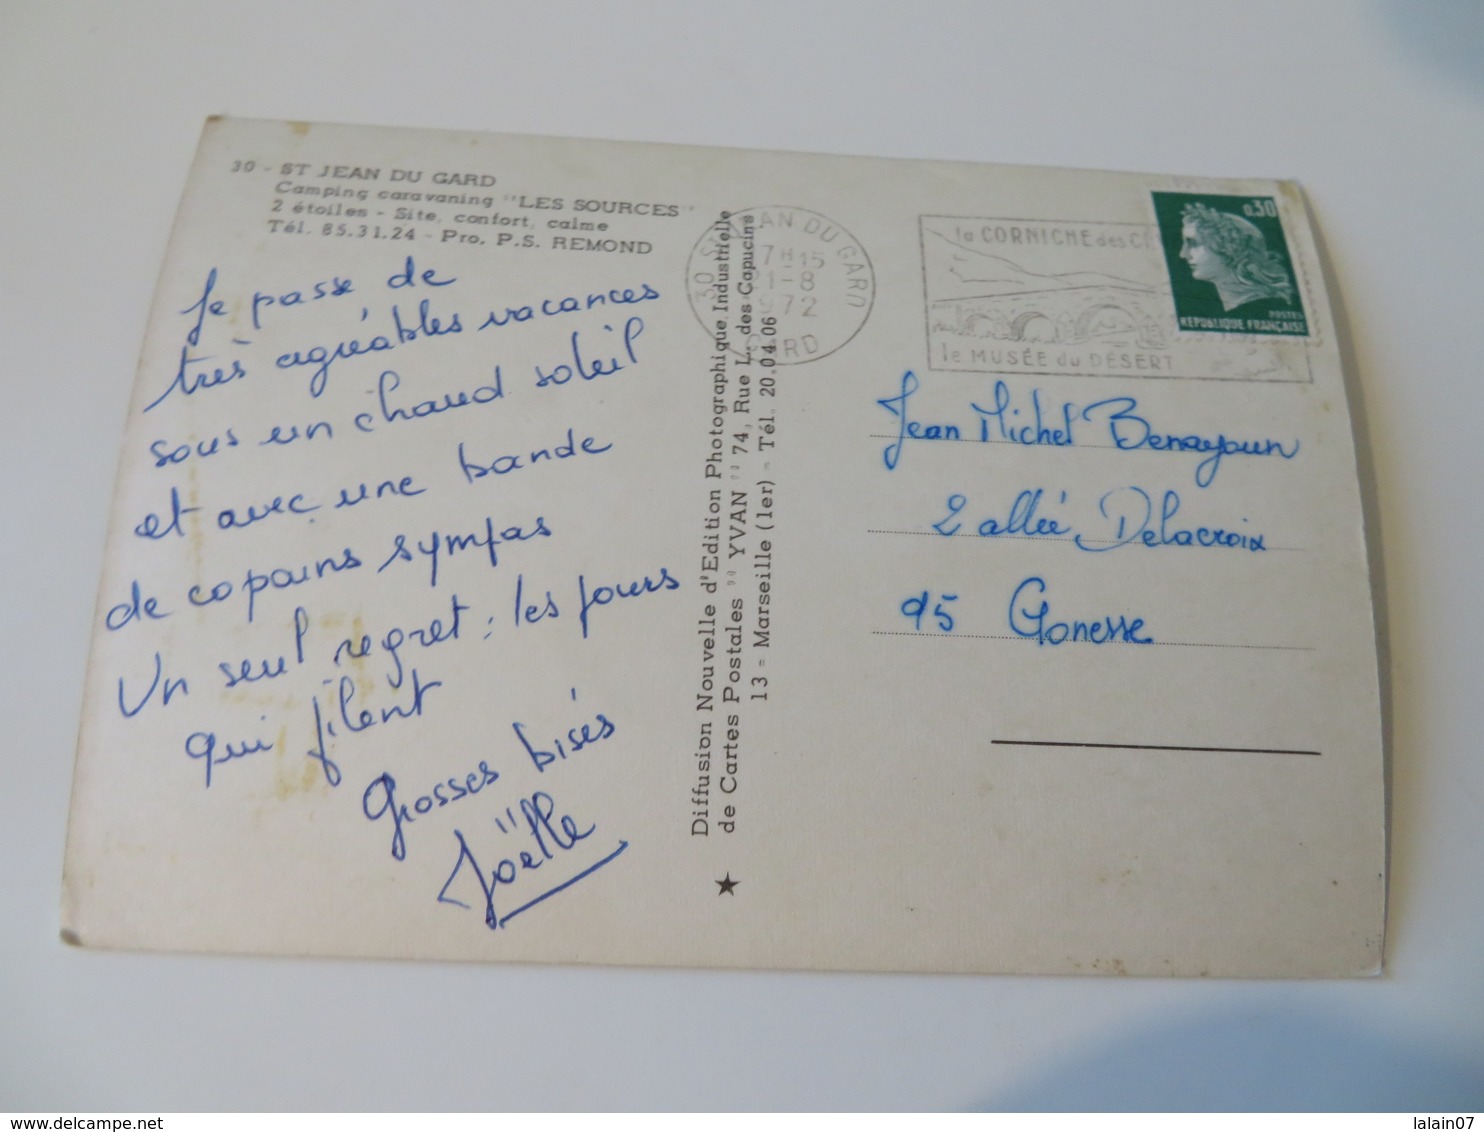 30 - ST JEAN DU GARD
Camping caravaning "LES SOURCES"
2 étoiles - Site, confort, calme
Tél. 85.31.24 - Pro. P.S. REMOND
Je passe de
très agréables vacances
sous un chaud soleil
et avec une bande
de copains sympas
Un seul regret : les jours
qui filent
Grosses bises
Joëlle
Diffusion Nouvelle d'Edition Photographique Industrielle
de Cartes Postales "YVAN" 74, Rue L. des Capucins
13 = Marseille (1er) - Tél. 20.04.06
30 ST JEAN DU GARD
7H15
21-8
1972
GARD
la CORNICHE des C
le MUSÉE du DÉSERT
0,30
POSTES
REPUBLIQUE FRANÇAISE
Jean Michel Benayoun
2 allée Delacroix
95 Gonesse
www.delcampe.net
lalain07